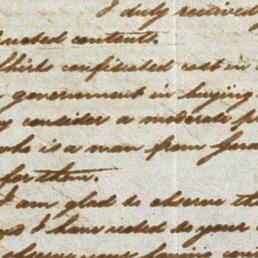 I duly received
noted contents.
confiscated cast in
government in buying
consider a moderate
is a man from
for them.
I am glad to observe
I have noted as your